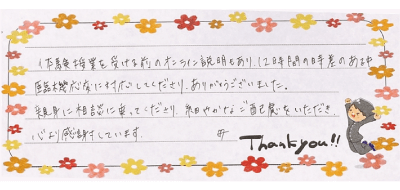 体験授業を受ける前のオンライン説明もあり、12時間の時差のある中
臨機応変に対応してくださり、ありがとうございました。
親身に相談に乗ってくださり、細やかなご配慮をいただき
心より感謝しています。
Thank you!!